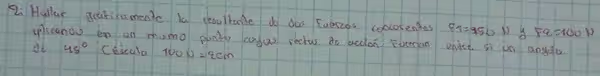 2. Hallar graficamente la resultante de dos Fuerzas concurrentes F1=350 N y F2=100 N
aplicando en un mismo punto cuyas rectas de acción Forman entre si un angulo
de 45° Cálcula 100 N = 2cm